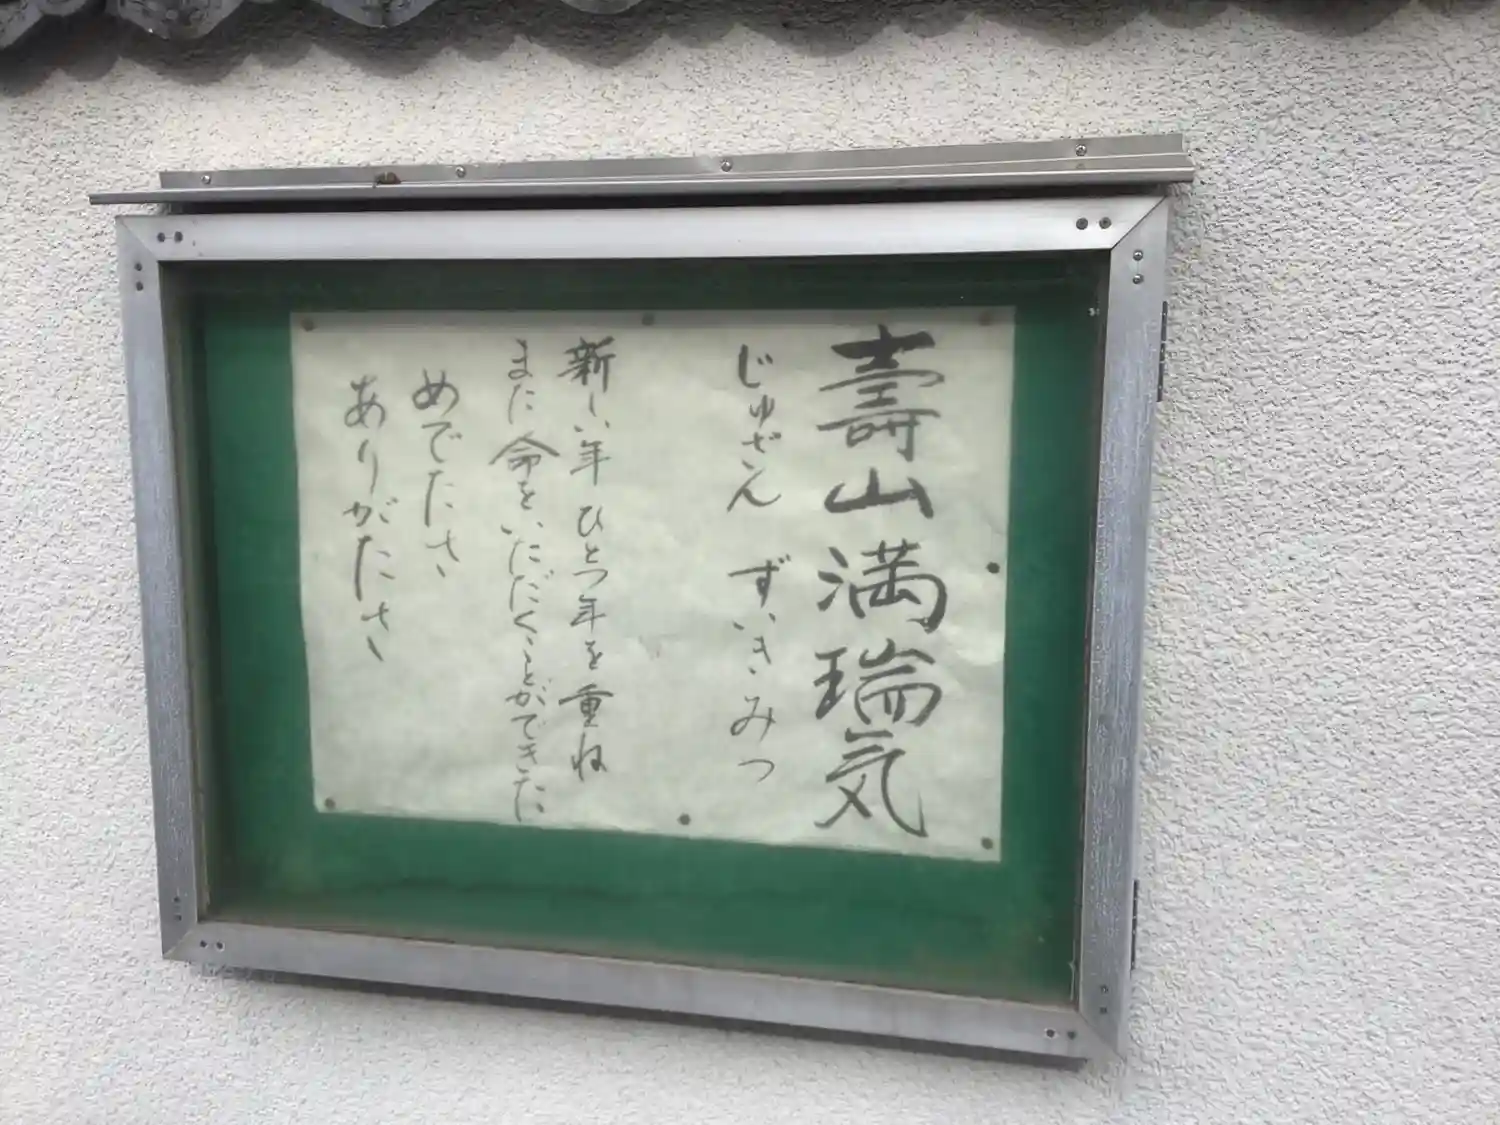 壽山満瑞気
じゅざん ずいきみつ
新しい年 ひとつ年を重ね
また命をいただくことができた
めでたさ
ありがたさ